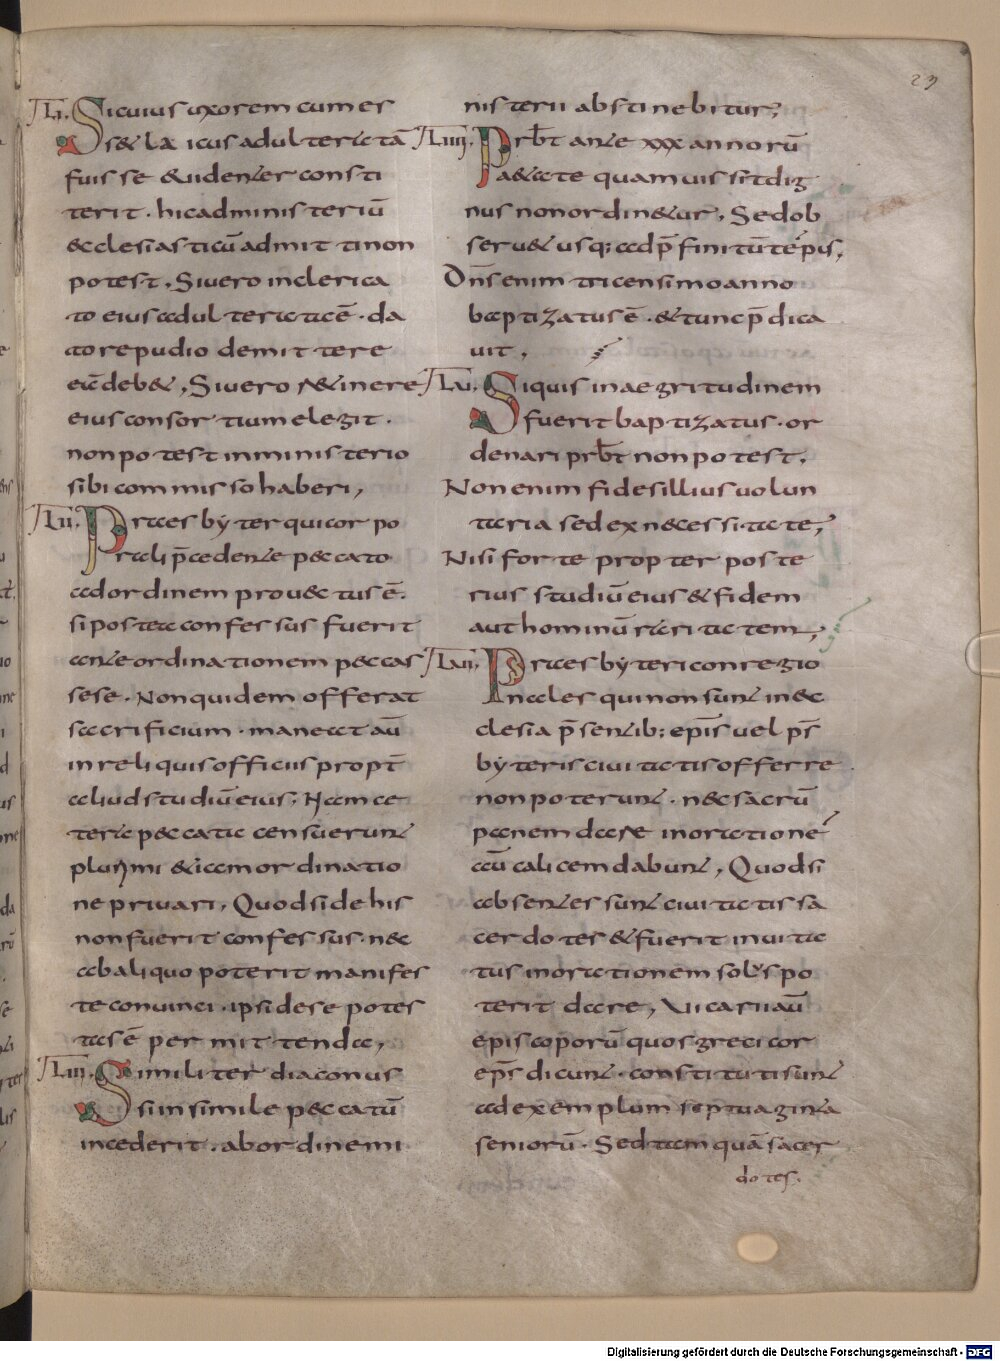 23
LI. Sicuius uxorem cum es
s& laicus adulteratā
fuisse euidenter consti
terit. hic administeriū
ecclesiasticū admitti non
potest. Si uero in clerica
to eius adulterata ē. da
to repudio demittere
eā deb&. Si uero r&inere
eius consortium elegit.
non potest in ministerio
sibi commisso haberi,
LII. Praesbyter qui corpo
rali p̄cedente peccato
ad ordinem prouectus ē.
si postea confessus fuerit
ante ordinationem peccas
sese. Non quidem offerat
sacrificium. maneat aū
in reliquis officiis propt̄
aliud studiū eius; Nam ce
tera peccata censuerunt
plurimi &iam ordinatio
ne priuari, Quod si de his
non fuerit confessus. nec
ab aliquo poterit manifes
te conuinci. ipsi de se potes
tas ē permittenda,
LIII. Similiter diaconus
si in simile peccatū
inciderit. ab ordine mi
nisterii abstinebitur;
LIIII. Prb̄t ante xxx annorū
aetate quamuis sit dig
nus non ordinetur, Sed ob
seruet usq; ad p̄finitū tēpis,
Dn̄s enim tricensimo anno
baptizatus ē. & tunc p̄dica
uit,
LV. Siquis in aegritudinem
fuerit baptizatus. or
denari prb̄t non potest.
Non enim fides illius uolun
taria sed ex necessitate;
Nisi forte propter poste
rius studiū eius & fidem
aut hominū raritatem;
LVI. Praesbyteri conregio
nales qui non sunt in ec
clesia p̄sentib; epīs uel pr̄s
byteris ciuitatis offerre
non poterunt. nec sacrū
panem dare in oratione
aū calicem dabunt, Quod si
absentes sunt ciuitatis sa
cerdotes & fuerit inuita
tus in orationem solus po
terit dare, Uicarii aū
episcoporū quos greci cor
epīs dicunt. constituti sunt
ad exemplum septuaginta
seniorū. Sed tam quā sacer
dotes.
Digitalisierung gefördert durch die Deutsche Forschungsgemeinschaft - DFG